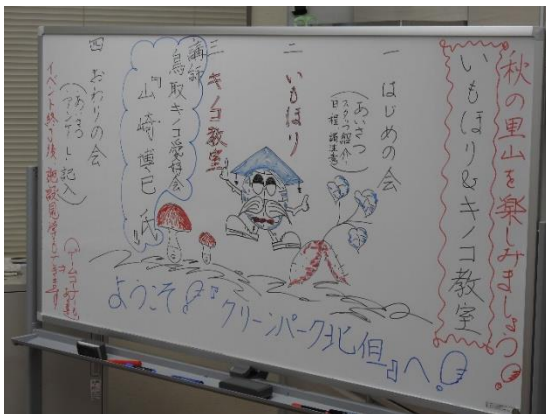 秋の里山を楽しみましょう
いもほり&キノコ教室
一 はじめの会
(あいさつ
スタッフ紹介・
日程・諸注意)
二 いもほり
三 キノコ教室
講師
鳥取キノコ愛好会
山崎博巳 氏
四 おわりの会
(あいさつ
アンケート記入)
イベント終了後
ようこそ『クリーンパーク北但』へ!